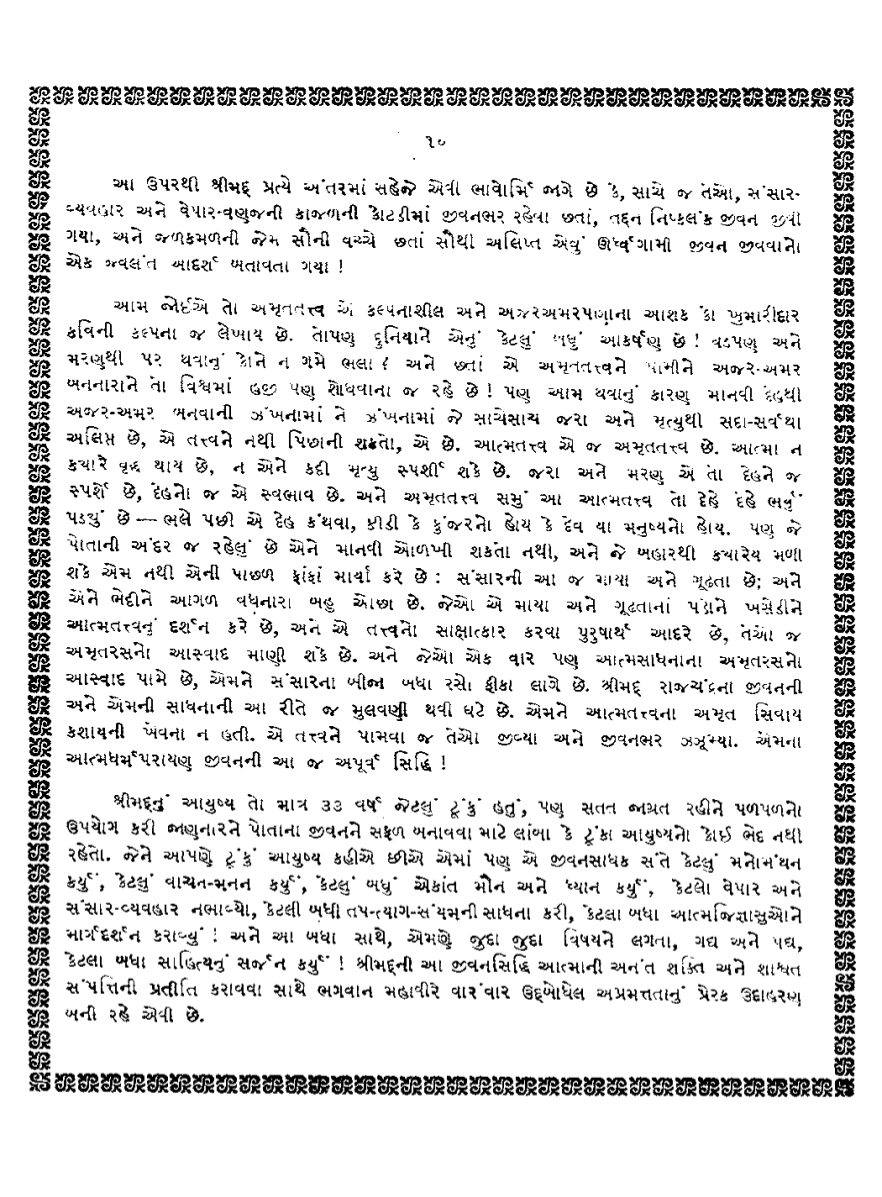 ૧૦
આ ઉપરથી શ્રીમદ્ પ્રત્યે અંતરમાં સહેજે એવી ભાવોર્મિ જાગે છે કે, સાચે જ તેઓ, સંસાર-
વ્યવહાર અને વેપાર-વણજની કાજળની કોટડીમાં જીવનભર રહેવા છતાં, તદ્દન નિષ્કલંક જીવન જીવી
ગયા, અને જળકમળની જેમ સૌની વચ્ચે છતાં સૌથી અલિપ્ત એવું ઊર્ધ્વગામી જીવન જીવવાનો
એક જ્વલંત આદર્શ બતાવતા ગયા !
આમ જોઈએ તો અમૃતતત્ત્વ એ કલ્પનાશીલ અને અજરઅમરપણાના આશક કો ખુમારીદાર
કવિની કલ્પના જ લેખાય છે. તોપણ દુનિયાને એનું કેટલું બધું આકર્ષણ છે ! વડપણ અને
મરણથી પર થવાનું કોને ન ગમે ભલા ? અને છતાં એ અમૃતતત્ત્વને પામીને અજર-અમર
બનનારાને તો વિશ્વમાં હજી પણ શોધવાના જ રહે છે ! પણ આમ થવાનું કારણ માનવી દેહથી
અજર-અમર બનવાની ઝંખનામાં ને ઝંખનામાં જે સાચેસાચ જરા અને મૃત્યુથી સદા-સર્વથા
અલિપ્ત છે, એ તત્ત્વને નથી પિછાની શકતો, એ છે. આત્મતત્ત્વ એ જ અમૃતતત્ત્વ છે. આત્મા ન
ક્યારે વૃદ્ધ થાય છે, ન એને કદી મૃત્યુ સ્પર્શી શકે છે. જરા અને મરણ એ તો દેહને જ
સ્પર્શે છે, દેહનો જ એ સ્વભાવ છે. અને અમૃતતત્ત્વ સમું આ આત્મતત્ત્વ તો દેહે દેહે ભર્યું
પડ્યું છે — ભલે પછી એ દેહ કંથવા, કીડી કે કુંજરનો હોય કે દેવ યા મનુષ્યનો હોય. પણ જે
પોતાની અંદર જ રહેલું છે એને માનવી ઓળખી શકતો નથી, અને જે બહારથી ક્યારેય મળી
શકે એમ નથી એની પાછળ ફાંફાં માર્યા કરે છે : સંસારની આ જ માયા અને ગૂઢતા છે; અને
એને ભેદીને આગળ વધનારા બહુ ઓછા છે. જેઓ એ માયા અને ગૂઢતાનાં પડોને ખસેડીને
આત્મતત્ત્વનું દર્શન કરે છે, અને એ તત્ત્વનો સાક્ષાત્કાર કરવા પુરુષાર્થ આદરે છે, તેઓ જ
અમૃતરસનો આસ્વાદ માણી શકે છે. અને જેઓ એક વાર પણ આત્મસાધનાના અમૃતરસનો
આસ્વાદ પામે છે, એમને સંસારના બીજા બધા રસો ફીકા લાગે છે. શ્રીમદ્ રાજચંદ્રના જીવનની
અને એમની સાધનાની આ રીતે જ મુલવણી થવી ઘટે છે. એમને આત્મતત્ત્વના અમૃત સિવાય
કશાયની ખેવના ન હતી. એ તત્ત્વને પામવા જ તેઓ જીવ્યા અને જીવનભર ઝઝૂમ્યા. એમના
આત્મધર્મપરાયણ જીવનની આ જ અપૂર્વ સિદ્ધિ !
શ્રીમદ્‌નું આયુષ્ય તો માત્ર ૩૩ વર્ષ જેટલું ટૂંકું હતું, પણ સતત જાગ્રત રહીને પળપળનો
ઉપયોગ કરી જાણનારને પોતાના જીવનને સફળ બનાવવા માટે લાંબા કે ટૂંકા આયુષ્યનો કોઈ ભેદ નથી
રહેતો. જેને આપણે ટૂંકું આયુષ્ય કહીએ છીએ એમાં પણ એ જીવનસાધક સંતે કેટલું મનોમંથન
કર્યું, કેટલું વાચન-મનન કર્યું, કેટલું બધું એકાંત મૌન અને ધ્યાન કર્યું, કેટલો વેપાર અને
સંસાર-વ્યવહાર નભાવ્યો, કેટલી બધી તપ-ત્યાગ-સંયમની સાધના કરી, કેટલા બધા આત્મજિજ્ઞાસુઓને
માર્ગદર્શન કરાવ્યું ! અને આ બધા સાથે, એમણે જુદા જુદા વિષયને લગતા, ગદ્ય અને પદ્ય,
કેટલા બધા સાહિત્યનું સર્જન કર્યું ! શ્રીમદ્‌ની આ જીવનસિદ્ધિ આત્માની અનંત શક્તિ અને શાશ્વત
સંપત્તિની પ્રતીતિ કરાવવા સાથે ભગવાન મહાવીરે વારંવાર ઉદ્‌બોધેલ અપ્રમત્તતાનું પ્રેરક ઉદાહરણ
બની રહે એવી છે.